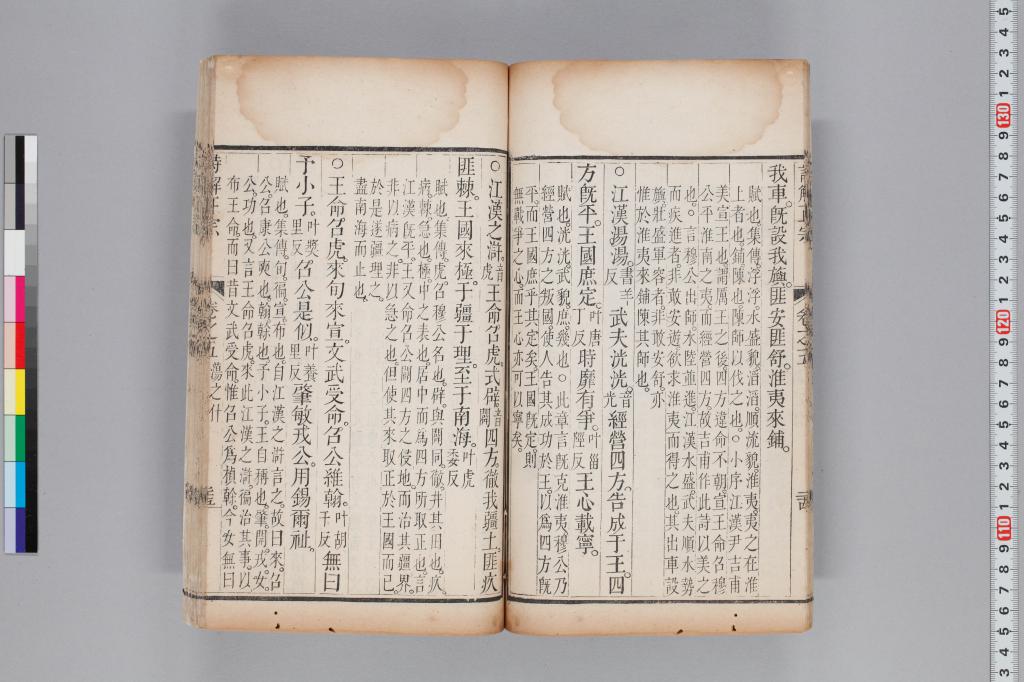 我車。既設我旟。匪安匪舒。淮夷來鋪。
賦也。集傳。浮浮水盛貌。滔滔。順流貌。淮夷。夷之在淮
上者也。鋪陳也。陳師以伐之也。○小序江漢。尹吉甫
美宣王也。謂厲王之後。四方違命不朝。宣王命召穆
公平淮南之夷。而經營四方。故吉甫作此詩以美之
也。○言穆公出師。水陸並進。江漢水盛。武夫順水勢
而疾進者。非敢安遊。欲求淮夷而得之也。其出車設
旟。壯盛軍容者。非敢安舒。亦
惟於淮夷來鋪陳其師也。
○江漢湯湯。音書羊反武夫洸洸。音光經營四方。告成于王。四
方既平。王國庶定。叶唐丁反時靡有爭。叶甾陘反王心載寧。
賦也。洸洸。武貌。庶幾也。○此章言既克淮夷。穆公乃
經營四方之叛國。使人告其成功於王。以為四方既
平。而王國庶乎其定矣。王國既定。則
無戰爭之心。而王心亦可以寧矣。
○江漢之滸。音虎王命召虎。式辟音闢四方。徹我疆土。匪疚
匪棘。王國來極。于疆于理。至于南海。叶虎委反
賦也。集傳。虎。召穆公名也。辟與闢同。徹。井其田也。疚。
病。棘。急也。極。中之表也。居中而為四方所取正也。言
江漢既平。王又命召公闢四方之侵地。而治其疆界。
非以病之。非以急之也。但使其來取正於王國而已。
於是遂疆理之。
盡南海而止也。
○王命召虎。來旬來宣。文武受命。召公維翰。叶胡千反無曰
予小子。叶獎里反召公是似。叶養里反肇敏戎公。用錫爾祉。
賦也。集傳。旬。徧。宣。布也。自江漢之滸言之。故曰來。召
公。召康公奭也。翰。榦也。予小子。王自稱也。肇。開。戎。女。
公。功也。○又言王命召虎。來此江漢之滸。徧治其事。以
布王命。而曰昔文武受命。惟召公為楨榦。今女無曰
詩解正宗 卷之五 蕩之什